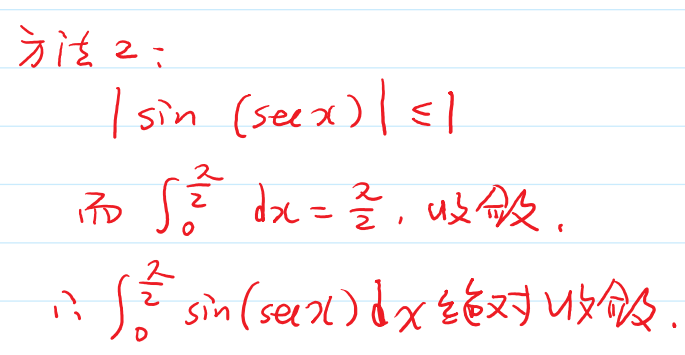 方法2：
|sin (secx)| ≤ 1
而 ∫₀^{π/2} dx = π/2，收敛．
∴ ∫₀^{π/2} sin(secx)dx 绝对收敛．